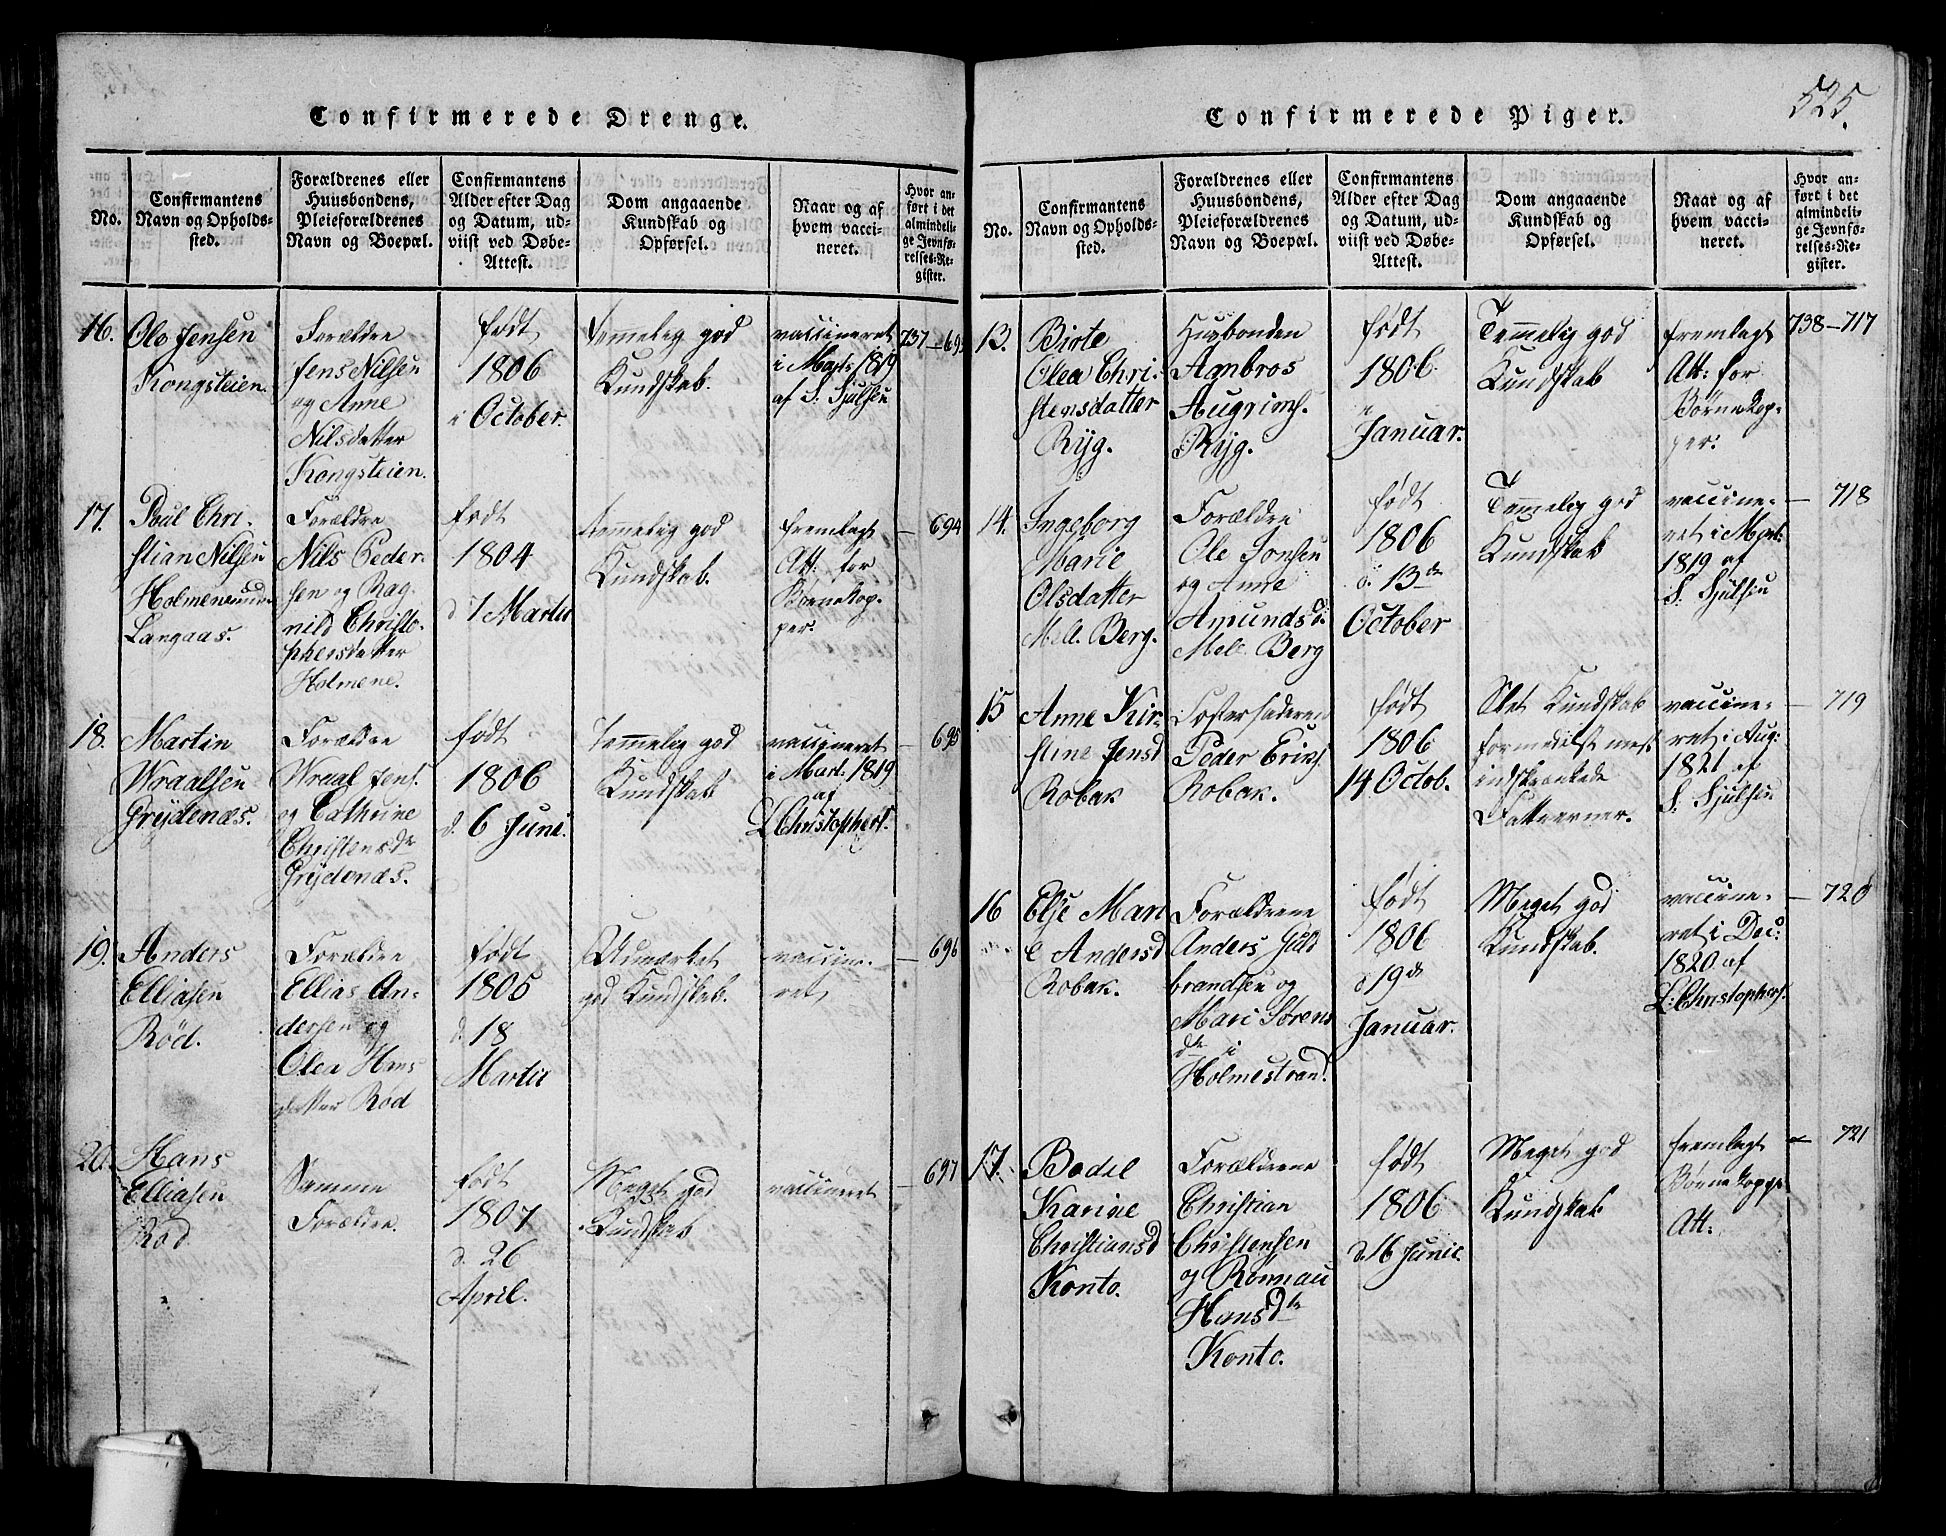 525.
Confirmerede Drenge.
No.
Confirmantens
Navn og Opholds-
sted.
Forældrenes eller
Huusbondens,
Pleieforældrenes
Navn og Boepæl.
Confirmantens
Alder efter Dag
og Datum, ud-
viist ved Døbe-
Attest.
Dom angaaende
Kundskab og
Opførsel.
Naar og af
hvem vacci-
neret.
Hvor an-
ført i det
almindeli-
ge Jevnfø-
relses-Re-
gister.
16.
Ole Jensen
Kongsteien.
Forældre
Jens Nilsen
og Anne
Nilsdatter
Kongsteien.
født
1806
i October.
temmelig god
Kundskab.
vaccineret
i Marts 1819
af S. Sjulsen
737-693
17.
Poul Chri-
stian Nilsen
Langaas.
Forældre
Nils Peder-
sen og Rag-
nild Christo-
phersdatter
Holmene.
født
1804
d 7 Martii
temmelig god
Kundskab.
fremlagt
Att: for
Børnekop-
per.
- 694
18.
Martin
Wraalsen
Grydenæs.
Forældre
Wraal Jens.
og Cathrine
Christensdr
Grydenæs.
født
1806
d. 6 Juni.
Temmelig god
Kundskab
vaccineret
i Mart. 1819
af
L Christophers.
- 695
19.
Anders
Elliasen
Rød.
Forældre
Ellias An-
dersen og
Olea Hans
datter Rød
født
1805
d. 18
Martii
Udmærket
god Kundskab.
vaccine-
ret
- 696
20.
Hans
Elliasen
Rød
Samme
Forældre.
født
1807
d. 26
April.
Meget god
Kundskab
vaccineret
- 697
Confirmerede Piger.
No.
Confirmantens
Navn og Opholds-
sted.
Forældrenes eller
Huusbondens,
Pleieforældrenes
Navn og Boepæl.
Confirmantens
Alder efter Dag
og Datum, ud-
viist ved Døbe-
Attest.
Dom angaaende
Kundskab og
Opførsel.
Naar og af
hvem vacci-
neret.
Hvor an-
ført i det
almindeli-
ge Jevnfø-
relses-Re-
gister.
13.
Birte
Olea Chri-
stensdatter
Ryg.
Husbonden
Ambros
Augrims.
Ryg.
født
1806.
Januar.
Temmelig god
Kundskab
fremlagt
Att: for
Børnekop-
per.
738-717
14.
Ingeborg
Marie
Olsdatter
Mell. Berg.
Forældre
Ole Jonsen
og Anne
Amundsd.
Mell. Berg
født
1806
d. 13de
October
Temmelig god
Kundskab
vaccine-
ret i Mart.
1819 af
S. Sjulsen
- 718
15
Anne Kir-
stine Jensd
Robak
Fosterfaderen
Peder Eriks.
Robak.
født
1806
14 Octob.
Slet Kundskab
formedelst meget
indskrænkede
Fatteevner.
vaccine-
ret i Aug:
1821 af
S. Sjulsen
- 719
16
Elje Mari
e Andersd
Robak.
Forældrene
Anders Guld
brandsen og
Mari Sørens
dtr i
Holmestrand.
født
1806
d 19de
Januar.
Meget god
Kundskab.
vaccine-
ret i Dec:
1820 af
L: Christophers.
- 720
17.
Bodil
Karine
Christiansd
Konto.
Forældrene
Christian
Christensen
og Rønnau
Hansdtr
Konto.
født
1806
d. 16 Junii.
Meget god
Kundskab
fremlagt
Børnekoppe
Att:
- 721